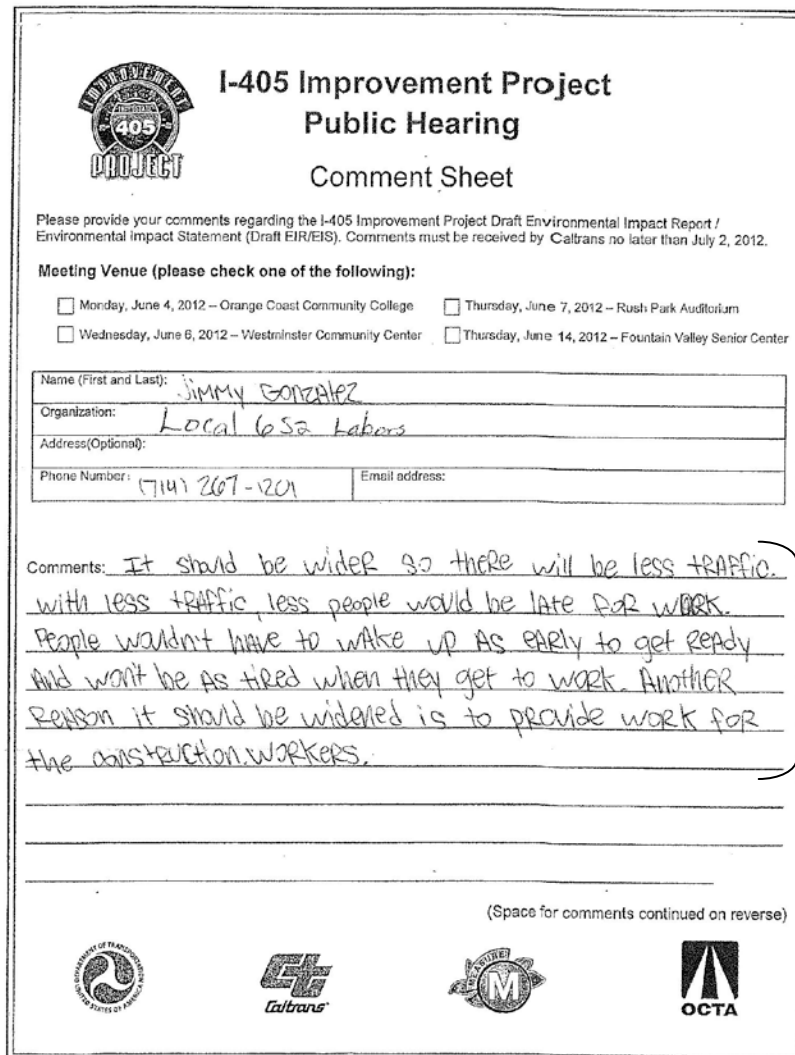 IMPROVEMENT
405
PROJECT
I-405 Improvement Project
Public Hearing
Comment Sheet
Please provide your comments regarding the I-405 Improvement Project Draft Environmental Impact Report /
Environmental Impact Statement (Draft EIR/EIS). Comments must be received by Caltrans no later than July 2, 2012.
Meeting Venue (please check one of the following):
Monday, June 4, 2012 – Orange Coast Community College
Thursday, June 7, 2012 – Rush Park Auditorium
Wednesday, June 6, 2012 – Westminster Community Center
Thursday, June 14, 2012 – Fountain Valley Senior Center
Name (First and Last): Jimmy Gonzalez
Organization: Local 652 Labors
Address(Optional):
Phone Number: (714) 267-1201
Email address:
Comments: It should be wider so there will be less traffic.
with less traffic, less people would be late for work.
People wouldn't have to wake up as early to get ready
And won't be as tired when they get to work. Another
Reason it should be widened is to provide work for
the construction workers.
(Space for comments continued on reverse)
DEPARTMENT OF TRANSPORTATION
UNITED STATES OF AMERICA
Caltrans
MEASURE
M
OCTA